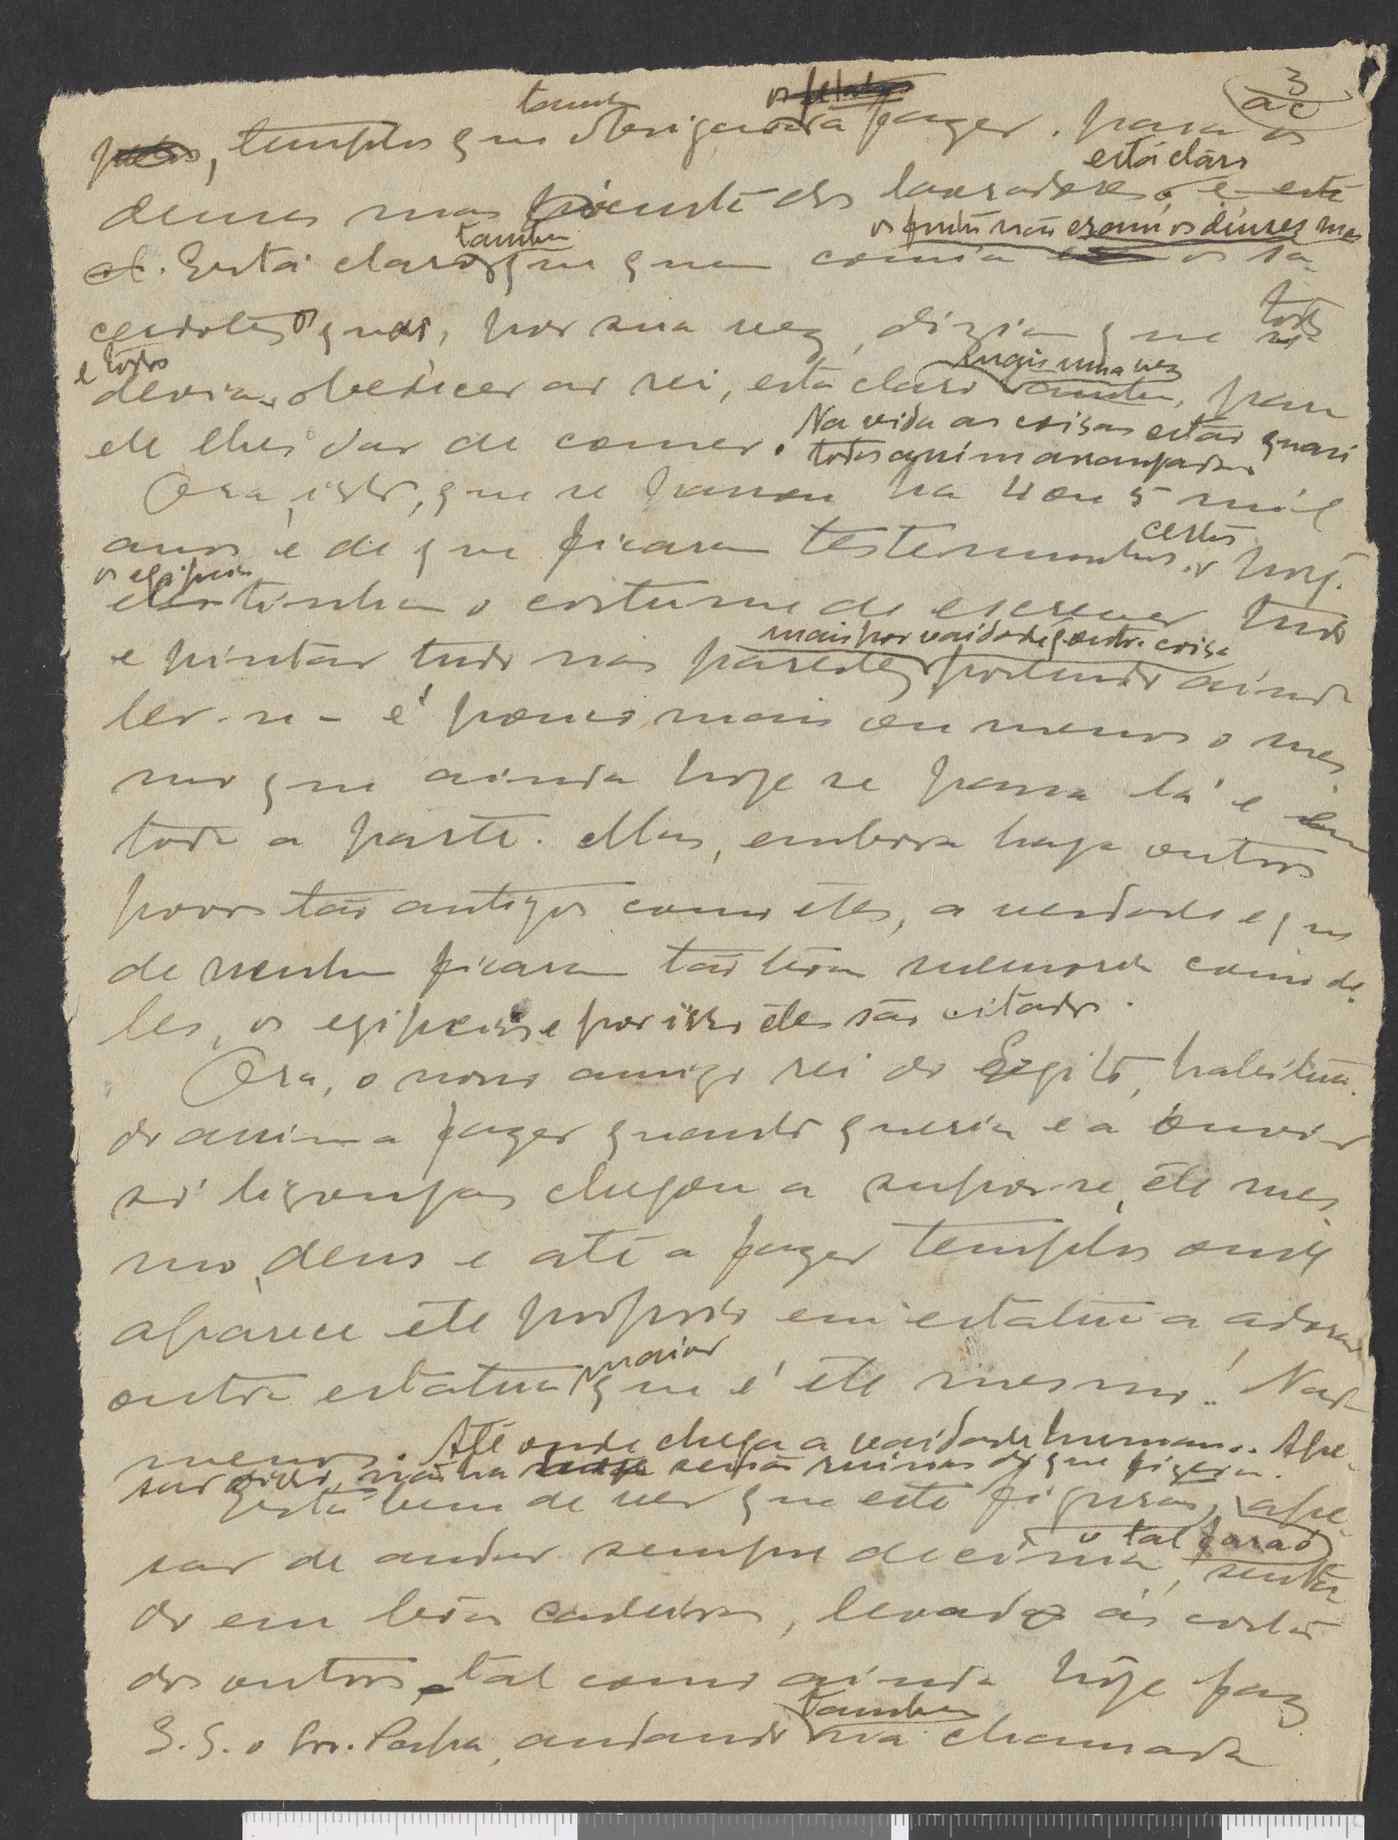 3
ac
tambem
, templos que obrigava a fazer. para os
está claro
deuses mas á custa dos lavradores, e está
tambem
os frutos não eram os deuses mas
Está claro que quem comia os sa-
cerdotes os quais, por sua vez, diziam que todos
e todos
deviam obedecer ao rei, está claro mais uma vez, para
ele lhes dar de comer. Na vida as coisas estão quasi
todas assim arranjadas
Ora, isto, que se passou ha 4 ou 5 mil
anos e de que ficaram testemunhos certos, hoj.
os egipcios
tinham o costume de escrever tudo
mais por vaidade q outra coisa
e pintar tudo nas paredes podendo ainda
ler-se - é pouco mais ou menos o mes-
mo que ainda hoje se passa lá e em
toda a parte. Mas, embora haja outros
povos tão antigos como êles, a verdade e que
de nenhum ficaram tão boa memoria como de-
les, os egipcios e por isso êles são citados.
Ora, o nosso amigo rei do Egito, habitua-
do assim a fazer quanto queria e a ouvir
só lisonjas chegou a supor-se, êle mes-
mo, deus e até a fazer templos onde
aparece êle proprio em estatua a adorar
maior
outra estatua que é êle mesmo! Nada
menos. Até onde chega a vaidade humana. Ape-
sar disso, não ha senão ruinas do que fizeram.
Está bem de ver que este figurão, ape-
o tal faraó
sar de andar sempre de cima, senta-
do em boas cadeiras, levado ás costas
dos outros, tal como ainda hoje faz
tambem
S.S. o Sr. Papa, andando na chamada